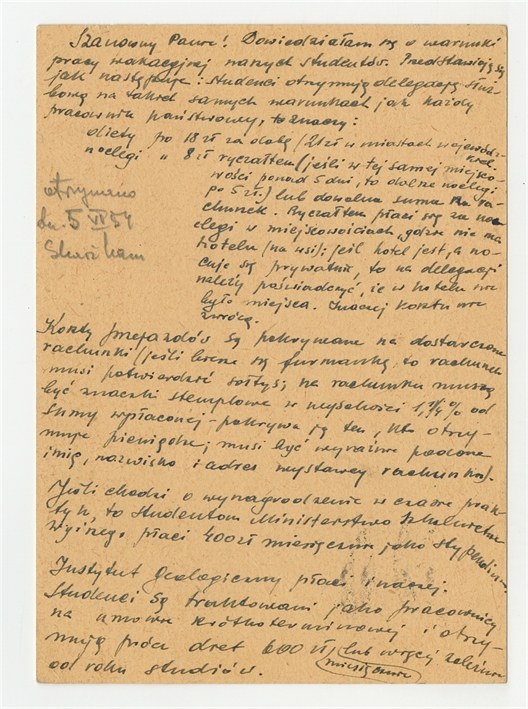 Szanowny Panie! Dowiedziałam się o warunki
pracy wakacyjnej naszych studentów. Przedstawiają się
jak następuje: studenci otrzymują delegację służ-
bową na takich samych warunkach jak każdy
pracownik państwowy, to znaczy:
diety po 18 zł za dobę (21 zł w miastach wojewódz-
kich
noclegi " 8 zł ryczałtem (jeśli w tej samej miejsco-
wości ponad 5 dni, to dalsze noclegi
po 5 zł.) lub dowolna suma za ra-
chunek. Ryczałtem płaci się za noc-
legi w miejscowościach, gdzie nie ma
hotelu (na wsi); jeśli hotel jest, a no-
cuje się prywatnie, to na delegacji
należy poświadczyć, że w hotelu nie
było miejsca. Inaczej kosztu nie
zwrócą.
otrzymano
dn. 5 VI 54
Koszty przejazdów są pokrywane na dostarczone
rachunki (jeśli bierze się furmankę, to rachunek
musi potwierdzić sołtys; na rachunku muszą
być znaczki stemplowe w wysokości 1 % od
sumy wpłaconej - pokrywa ją ten, kto otrzy-
muje pieniądze; musi być wyraźnie podane
imię, nazwisko i adres wystawcy rachunku).
Jeśli chodzi o wynagrodzenie w czasie prak-
tyk, to studentom Ministerstwo Szkolnictwa
Wyższego płaci 400 zł miesięcznie jako stypendium.
Instytut Geologiczny płaci inaczej.
Studenci są traktowani jako pracownicy
na umowie krótkoterminowej i otrzy-
mują prócz diet 600 zł lub więcej zależnie
miesięcznie
od roku studiów.